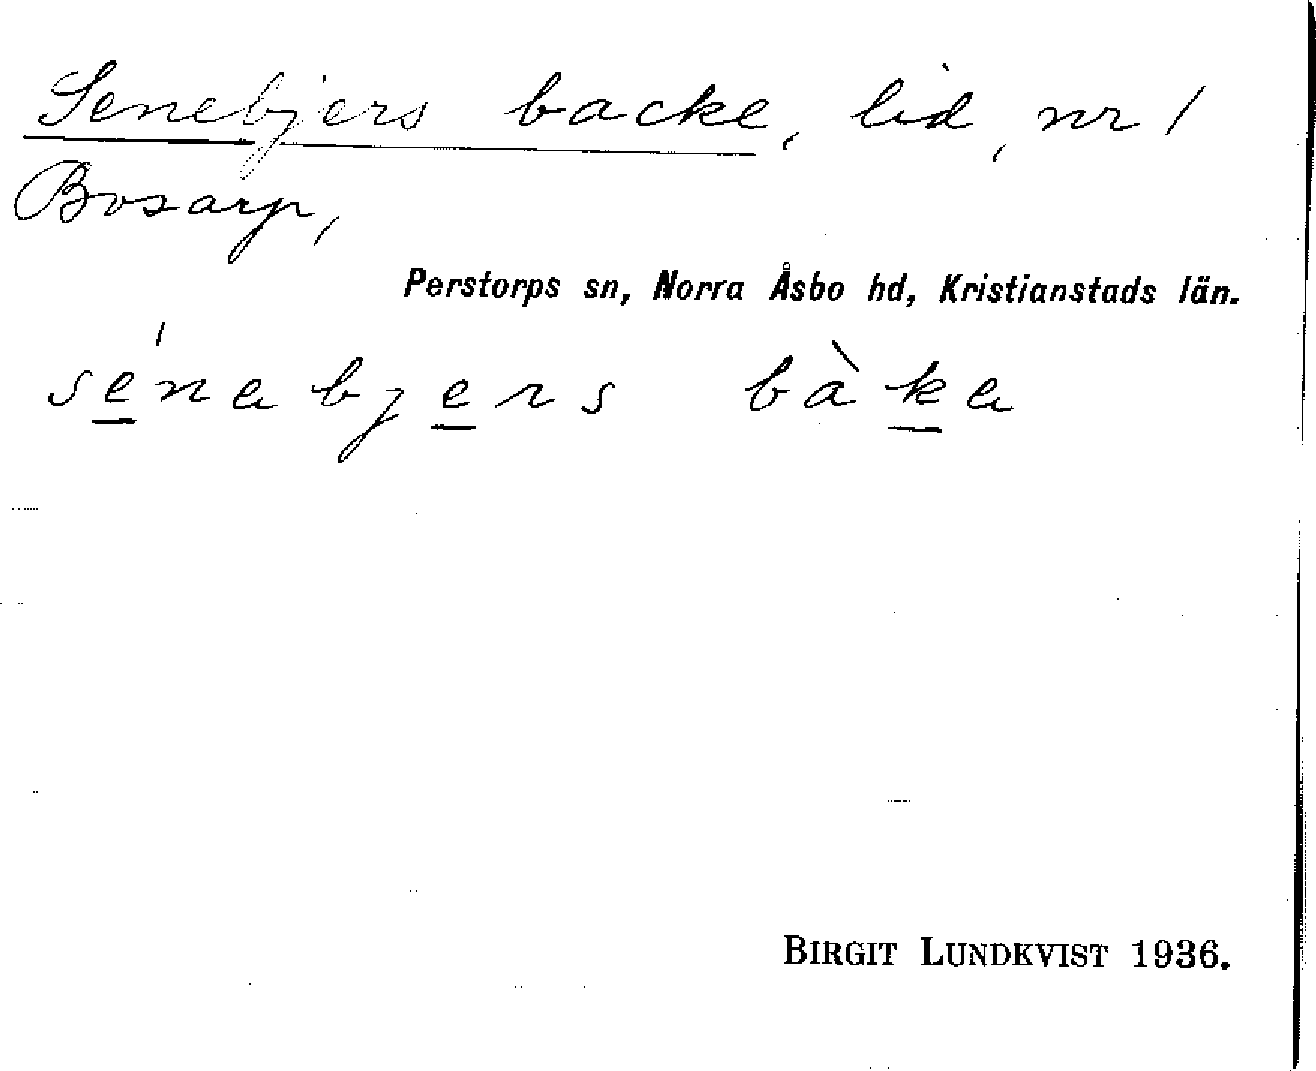 Senebjers backe, lid, nr 1
Bosarp,
Perstorps sn, Norra Åsbo hd, Kristianstads län.
sé̲nabje̲rs bàk̲a
BIRGIT LUNDKVIST 1936.